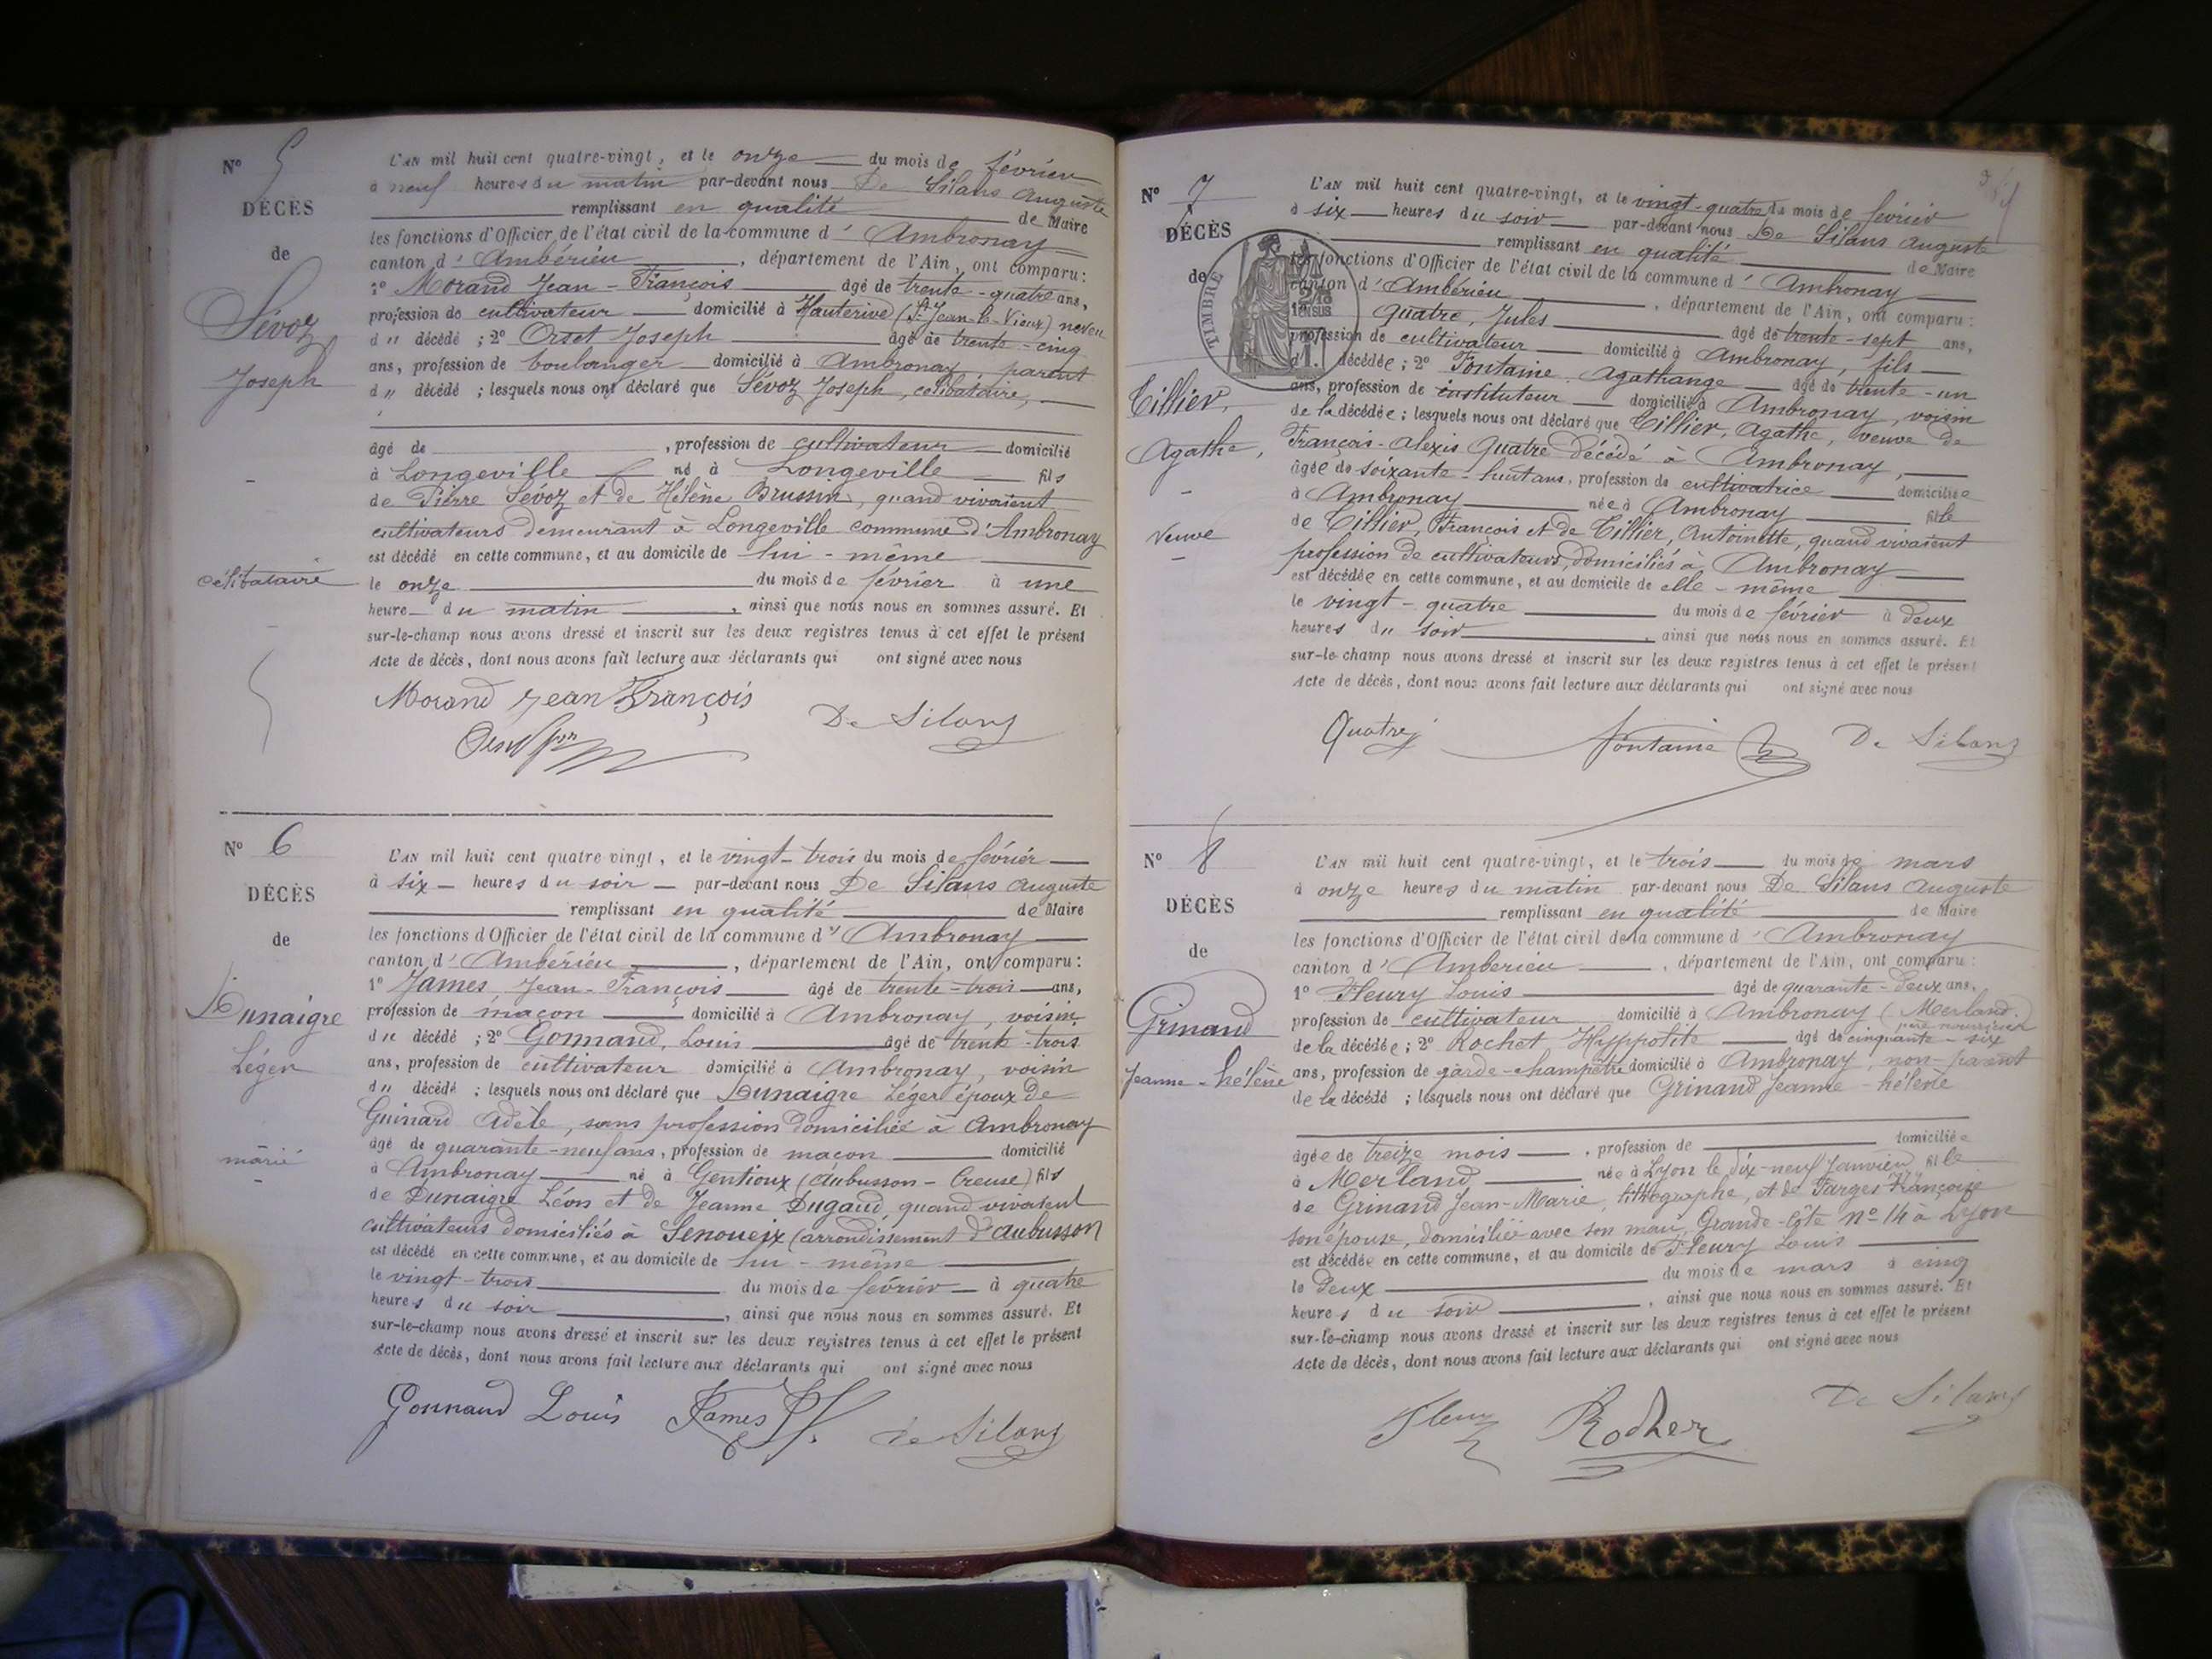 N° 5
DÉCÈS
de
Sévoz
Joseph
célibataire
L'AN mil huit cent quatre-vingt, et le onze du mois de février
à neuf heures du matin par-devant nous De Silans Auguste
remplissant en qualité de Maire
les fonctions d'Officier de l'état civil de la commune d' Ambronay
canton d' Ambérieu, département de l'Ain, ont comparu :
1° Morand Jean-François âgé de trente-quatre ans,
profession de cultivateur domicilié à Hauterive (St Jean-le-Vieux) neveu
du décédé ; 2° Orset Joseph âgé de trente-cinq
ans, profession de boulanger domicilié à Ambronay, parent
du décédé ; lesquels nous ont déclaré que Sévoz Joseph, célibataire,
âgé de , profession de cultivateur domicilié
à Longeville né à Longeville fils
de Pierre Sévoz et de Hélène Brussin, quand vivaient
cultivateurs demeurant à Longeville commune d'Ambronay
est décédé en cette commune, et au domicile de lui-même
le onze du mois de février à une
heure du matin, ainsi que nous nous en sommes assuré. Et
sur-le-champ nous avons dressé et inscrit sur les deux registres tenus à cet effet le présent
Acte de décès, dont nous avons fait lecture aux déclarants qui ont signé avec nous
Morand Jean François
De Silans
N° 6
DÉCÈS
de
Dunaigre
Léger
marié
L'AN mil huit cent quatre-vingt, et le vingt-trois du mois de février
à six heures du soir par-devant nous De Silans Auguste
remplissant en qualité de Maire
les fonctions d'Officier de l'état civil de la commune d' Ambronay
canton d' Ambérieu, département de l'Ain, ont comparu :
1° James Jean-François âgé de trente-trois ans,
profession de maçon domicilié à Ambronay, voisin
du décédé ; 2° Gonnand, Louis âgé de trente-trois
ans, profession de cultivateur domicilié à Ambronay, voisin
du décédé ; lesquels nous ont déclaré que Dunaigre Léger époux de
Guinard Adèle, sans profession domiciliée à Ambronay
âgé de quarante-neuf ans, profession de maçon domicilié
à Ambronay né à Gentioux (Aubusson-Creuse) fils
de Dunaigre Léon et de Jeanne Dugaud, quand vivaient
cultivateurs domiciliés à Senoueix (arrondissement d'Aubusson
est décédé en cette commune, et au domicile de lui-même
le vingt-trois du mois de février à quatre
heures du soir, ainsi que nous nous en sommes assuré. Et
sur-le-champ nous avons dressé et inscrit sur les deux registres tenus à cet effet le présent
Acte de décès, dont nous avons fait lecture aux déclarants qui ont signé avec nous
Gonnand Louis James JF. de Silans
N° 7
DÉCÈS
de
TIMBRE
Tillier,
Agathe,
Veuve
L'AN mil huit cent quatre-vingt, et le vingt-quatre du mois de février
à six heures du soir par-devant nous De Silans Auguste
remplissant en qualité de Maire
les fonctions d'Officier de l'état civil de la commune d' Ambronay
canton d' Ambérieu, département de l'Ain, ont comparu :
Quatre, Jules âgé de trente-sept ans,
profession de cultivateur domicilié à Ambronay, fils
décédée ; 2° Fontaine Agathange âgé de trente-un
ans, profession de instituteur domicilié à Ambronay, voisin
de la décédée ; lesquels nous ont déclaré que Tillier, Agathe, veuve de
François-Alexis Quatre décédé à Ambronay,
âgée de soixante-huit ans, profession de cultivatrice domiciliée
à Ambronay née à Ambronay fille
de Tillier, François et de Tillier, Antoinette, quand vivaient
profession de cultivateurs, domiciliés à Ambronay
est décédée en cette commune, et au domicile de elle-même
le vingt-quatre du mois de février à deux
heures du soir, ainsi que nous nous en sommes assuré. Et
sur-le-champ nous avons dressé et inscrit sur les deux registres tenus à cet effet le présent
Acte de décès, dont nous avons fait lecture aux déclarants qui ont signé avec nous
Quatre Fontaine De Silans
N° 8
DÉCÈS
de
Grinand
Jeanne-hélène
L'AN mil huit cent quatre-vingt, et le trois du mois de mars
à onze heures du matin par-devant nous De Silans Auguste
remplissant en qualité de Maire
les fonctions d'Officier de l'état civil de la commune d' Ambronay
canton d' Ambérieu, département de l'Ain, ont comparu :
1° Fleury Louis âgé de quarante-deux ans,
profession de cultivateur domicilié à Ambronay (Merland)
père nourricier
de la décédée ; 2° Rochet Hyppolite âgé de cinquante-six
ans, profession de garde-champêtre domicilié à Ambronay, non-parent
de la décédé ; lesquels nous ont déclaré que Grinand Jeanne-hélène
âgée de treize mois, profession de domiciliée
à Merland née à Lyon le dix-neuf Janvier, fille
de Grinand Jean-Marie, lithographe, et de Farges Françoise
son épouse, domiciliée avec son mari, Grande-Côte n° 14 à Lyon
est décédée en cette commune, et au domicile de Fleury Louis
le deux du mois de mars à cinq
heures du soir, ainsi que nous nous en sommes assuré. Et
sur-le-champ nous avons dressé et inscrit sur les deux registres tenus à cet effet le présent
Acte de décès, dont nous avons fait lecture aux déclarants qui ont signé avec nous
Fleury Rocher De Silans